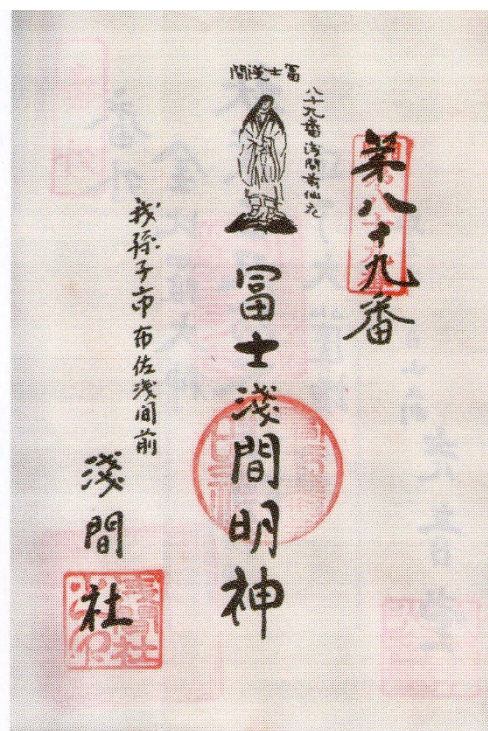 第八十九番
冨士淺間
八十九番 淺間前仙元
冨士淺間明神
我孫子市布佐浅間前
淺間社